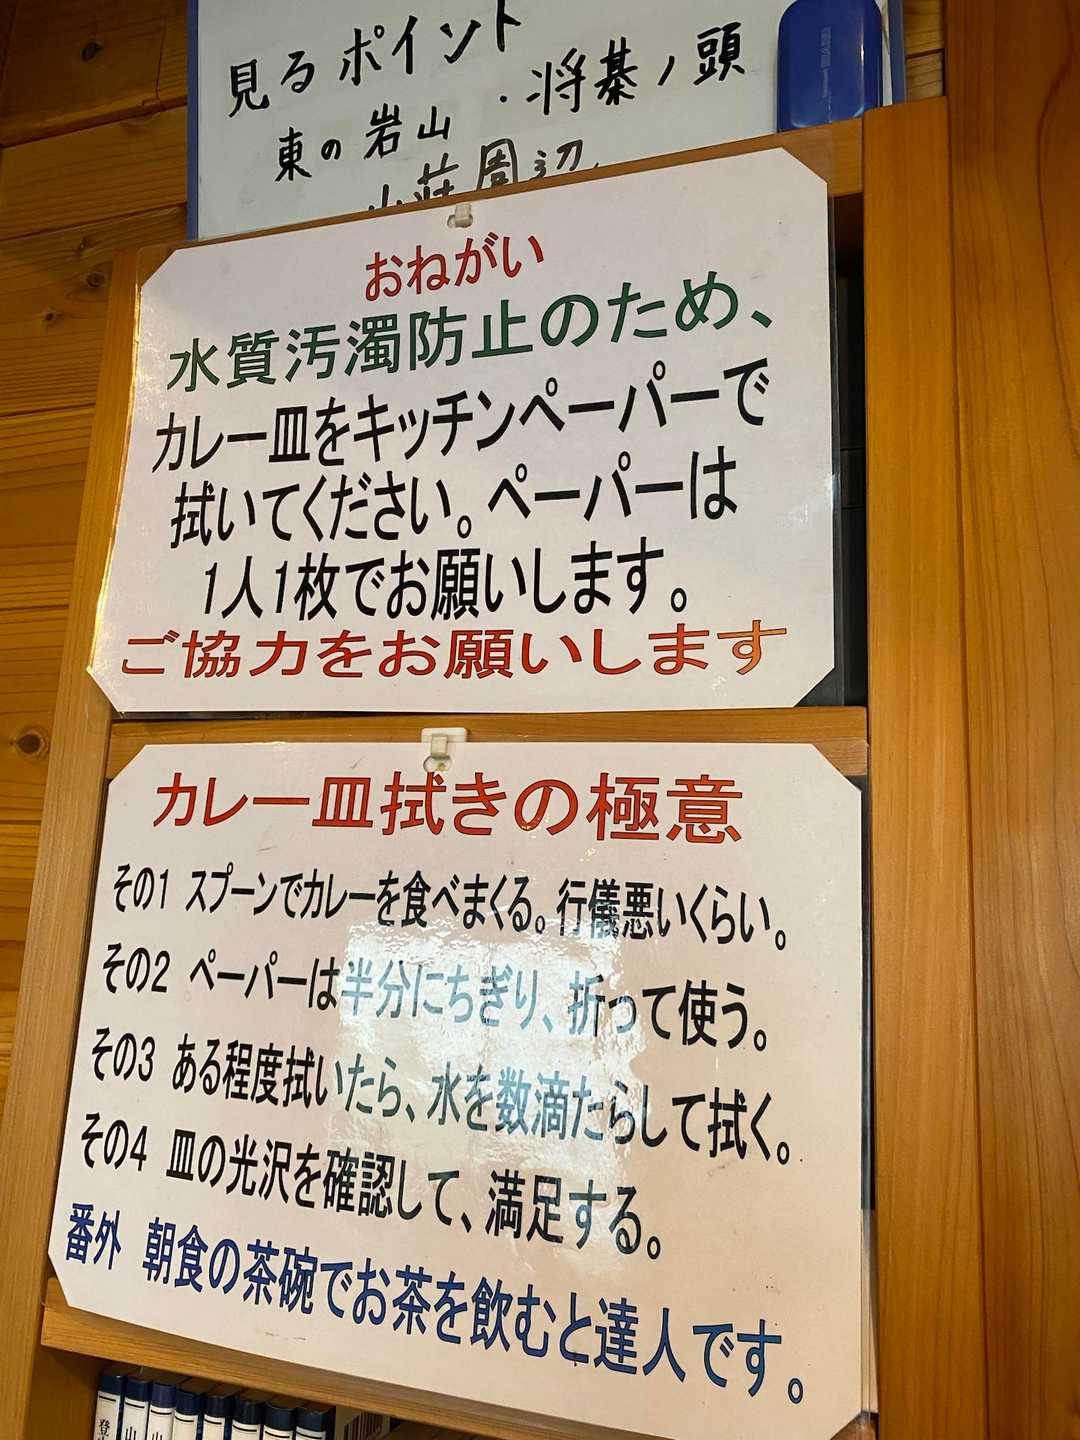 見るポイント
東の岩山 ・将棊ノ頭
山荘周辺
おねがい
水質汚濁防止のため、
カレー皿をキッチンペーパーで
拭いてください。ペーパーは
1人1枚でお願いします。
ご協力をお願いします
カレー皿拭きの極意
その1 スプーンでカレーを食べまくる。行儀悪いくらい。
その2 ペーパーは半分にちぎり、折って使う。
その3 ある程度拭いたら、水を数滴たらして拭く。
その4 皿の光沢を確認して、満足する。
番外 朝食の茶碗でお茶を飲むと達人です。